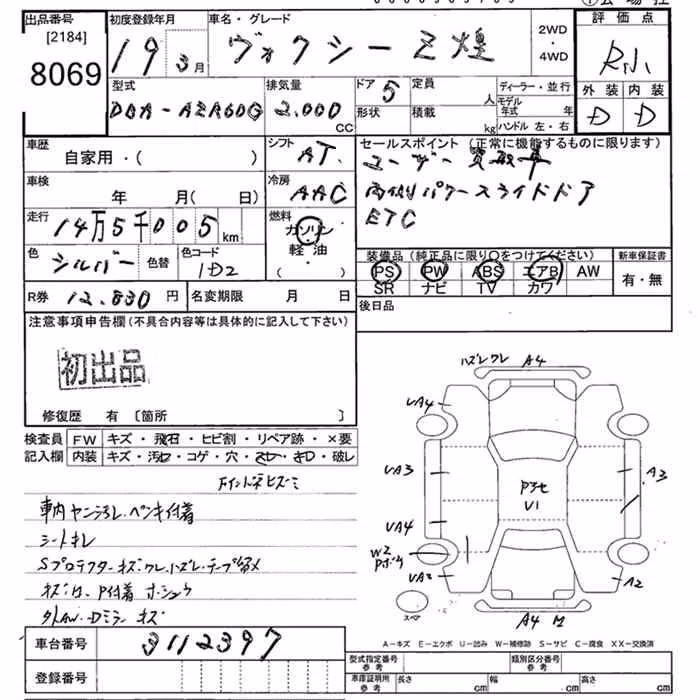 出品番号 初度登録年月 車名・グレード 2WD・4WD 評価点
[2184]
8069 19 3月 ヴォクシー Z煌 R小
型式 排気量 ドア 5 定員 人 ディーラー・並行 外装 内装
DBA-AZR60G 2.000 CC 形状 積載 kg モデル年式 年 ハンドル 左・右 D D
車歴 シフト セールスポイント (正常に機能するものに限ります)
自家用・( ) AT. ユーザー買取車
車検 冷房 両側パワースライドドア
年 月( 日) AAC ETC
走行 14万5千005km 燃料 ガソリン
軽・油
( )
色 シルバー 色替 色コード 1D2
装備品 (純正品に限り○をつけてください) 新車保証書
PS PW ABS エアB AW 有・無
SR ナビ TV カワ
R券 12.830円 名変期限 月 日 後日品
注意事項申告欄(不具合内容等は具体的に記入して下さい)
初出品
修復歴 有 〔箇所 〕
検査員 FW キズ・飛石・ヒビ割・リペア跡・×要
記入欄 内装 キズ・汚レ・コゲ・穴・スレ・キレ・破レ
車内ヤニ汚レ・ペンキ付着
シートキレ
Sプロテクターキズ・ワレ・ハズレ・テープ留メ
外AW・Dミラーキズ
ハズレワレ A4
UA4
UA3
UA4
W2
UA3
A3
A2
U1
スペア
A4
A-キズ E-エクボ U-凹み W-補修跡 S-サビ C-腐食 XX-交換済
車台番号 3112397
登録番号
型式指定番号 参考 類別区分番号 参考
車庫証明用 参考 長さ cm 幅 cm 高さ cm